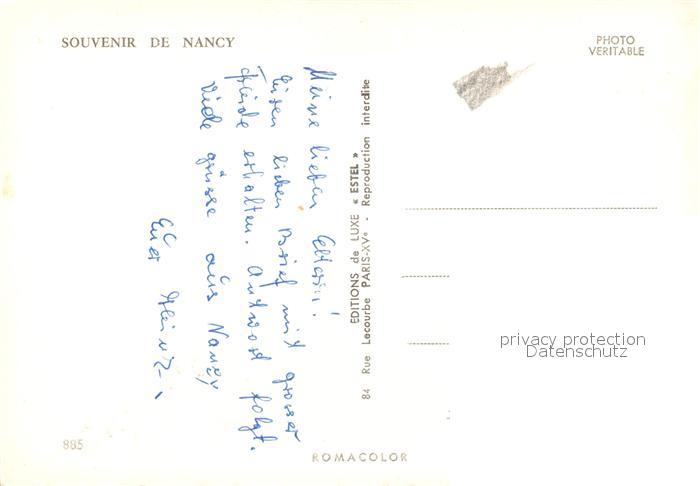 SOUVENIR DE NANCY
PHOTO
VERITABLE
Meine lieben Eltern!
lieben Brief mit grosser
Freude erhalten. Antwort folgt.
Viele grüsse aus Nancy
Euer Heinz
EDITIONS de LUXE « ESTEL »
84 Rue Lecourbe PARIS-XVe - Reproduction interdite
privacy protection
Datenschutz
885
ROMACOLOR